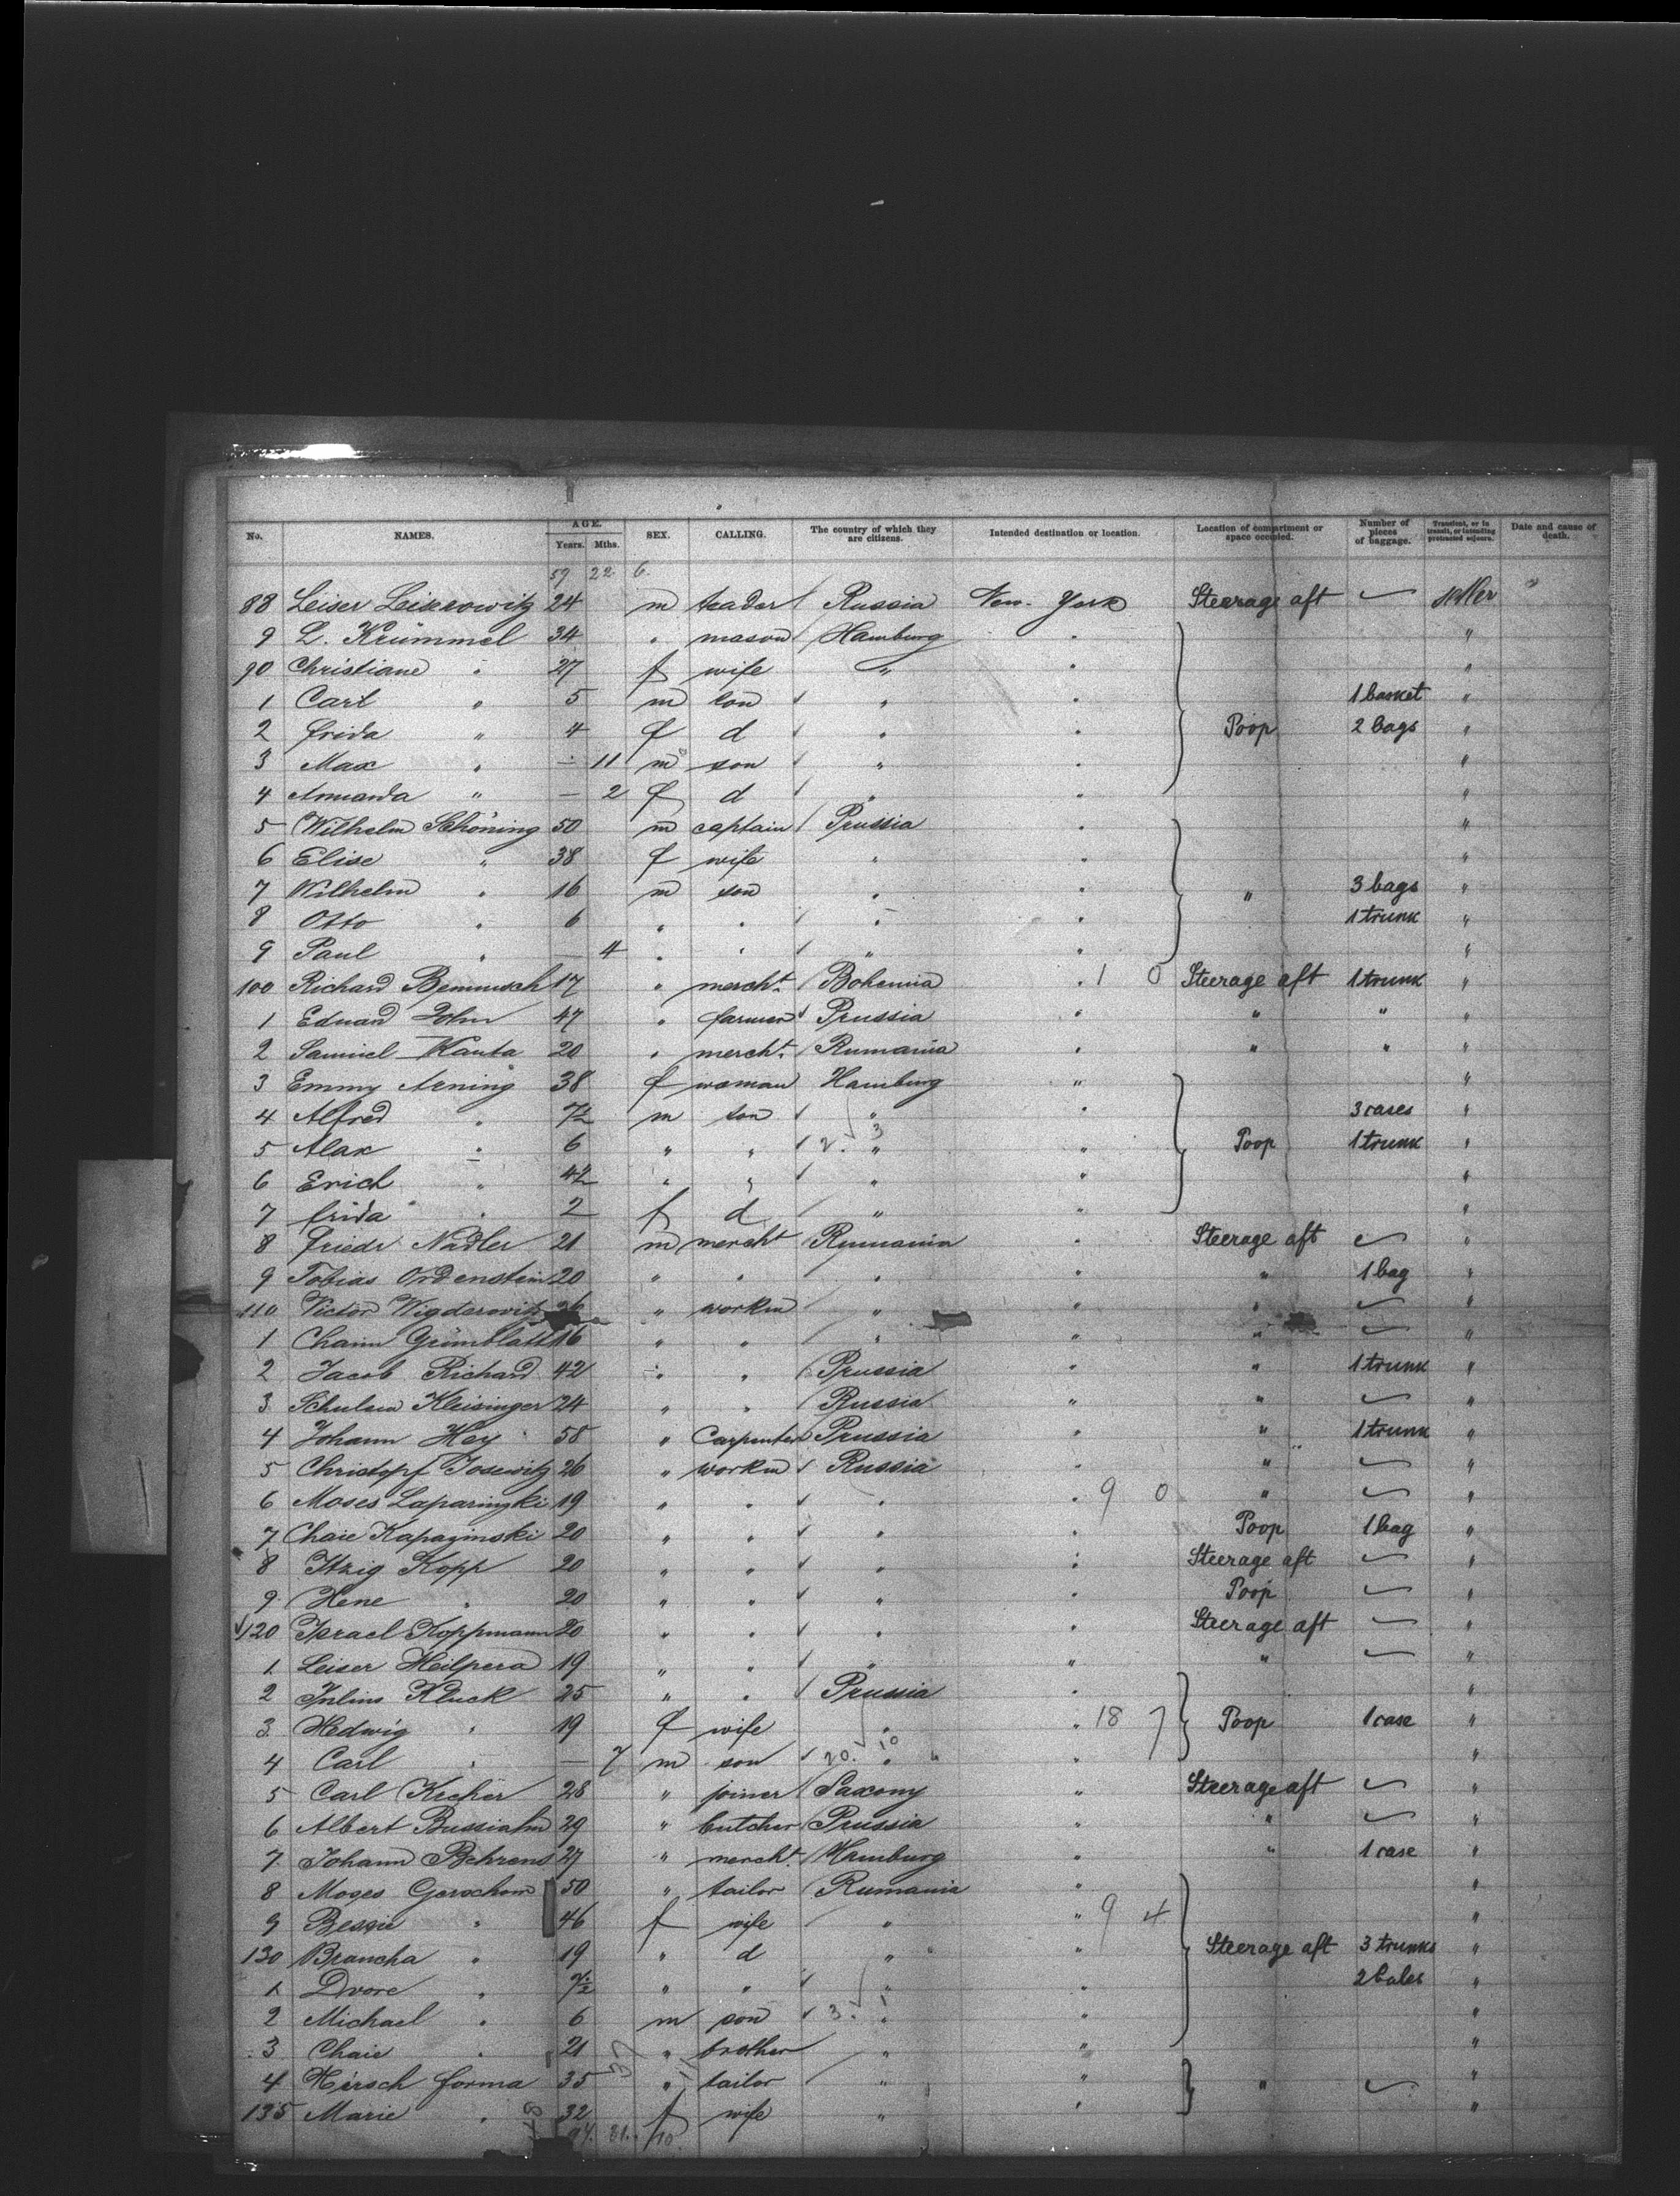 No. NAMES. AGE. Years. Mths. SEX. CALLING. The country of which they are citizens. Intended destination or location. Location of compartment or space occupied. Number of pieces of baggage. Transient, or in transit, or intending protracted sojourn. Date and cause of death.
59 22 6.
88 Leiser Leiserowitz 24 m trader Russia New York Steerage aft
9 L. Krümmel 34 " mason Hamburg " "
90 Christiane " 27 f wife " " "
1 Carl " 5 m son " " 1 basket "
2 Frida " 4 f d " " Poop 2 bags "
3 Max " — 11 m son " " "
4 Amanda " — 2 f d " " "
5 Wilhelm Schöning 50 m captain Prussia " "
6 Elise " 38 f wife " " "
7 Wilhelm " 16 m son " " " 3 bags "
8 Otto " 6 " " " " 1 trunk "
9 Paul " — 4 " " " " "
100 Richard Bemmsch 17 " mercht. Bohemia " 1 0 Steerage aft 1 trunk "
1 Eduard John 47 " farmer Prussia " " " "
2 Samuel Kanta 20 " mercht. Rumania " " " "
3 Emmy Arning 38 f woman Hamburg " "
4 Alfred " 7½ m son " " 3 cases "
5 Alax " 6 " " 2. 3 " " Poop 1 trunk "
6 Erich " 4½ " " " " "
7 Frida " 2 f d " " "
8 Friedr. Nadler 21 m mercht Rumania " Steerage aft "
9 Tobias Ordenstein 20 " " " " " 1 bag "
110 Victor Wigderovitz 26 " workm " " " "
1 Chaim Grünblatt 16 " " " " " "
2 Jacob Richard 42 " " Prussia " " 1 trunk "
3 Kleisinger 24 " " Russia " " "
4 Johann Hey 58 " Carpenter Prussia " " 1 trunk "
5 Christopf Josewitz 26 " workm Russia " " "
6 Moses 19 " " " " 9 0 " "
7 Chaie Kapazinski 20 " " " " Poop 1 bag "
8 Itzig Kopp 20 " " " " Steerage aft "
9 Hene " 20 " " " " Poop "
120 Israel Koppmann 20 " " " " Steerage aft "
1 Leiser Heilpera 19 " " " " " "
2 Julius Kluck 25 " " Prussia " "
3 Hedwig " 19 f wife " " 18 7 Poop 1 case "
4 Carl " — 7 m son 20. 10 " " "
5 Carl Kicher 28 " joiner Saxony " Steerage aft "
6 Albert Bussiahn 29 " butcher Prussia " " "
7 Johann Behrens 27 " mercht. Hamburg " " 1 case "
8 Moses Gerschom 50 " tailor Rumania " "
9 Bessie " 46 f wife " " 9 4 "
130 Brancha " 19 " d " " Steerage aft 3 trunks "
1 Dvore " 7½ " " " " 2 bales "
2 Michael " 6 m son 3. 1 " " "
3 Chaie " 21 " brother " " "
4 Hersch Forma 35 " tailor " " " "
135 Marie " 32 f wife " " "
94. 31. 10.